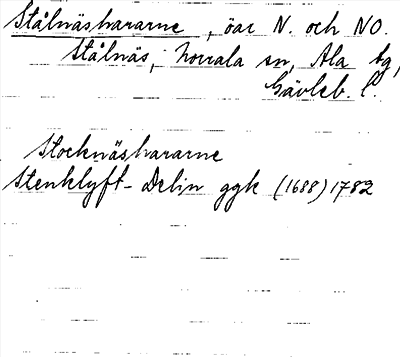 Stålnäshararne, öar N. och NO.
Stålnäs, Norrala sn, Ala tg,
Gävleb. l.
Stocknäshararne
Stenklyft-Delin ggk (1688) 1782